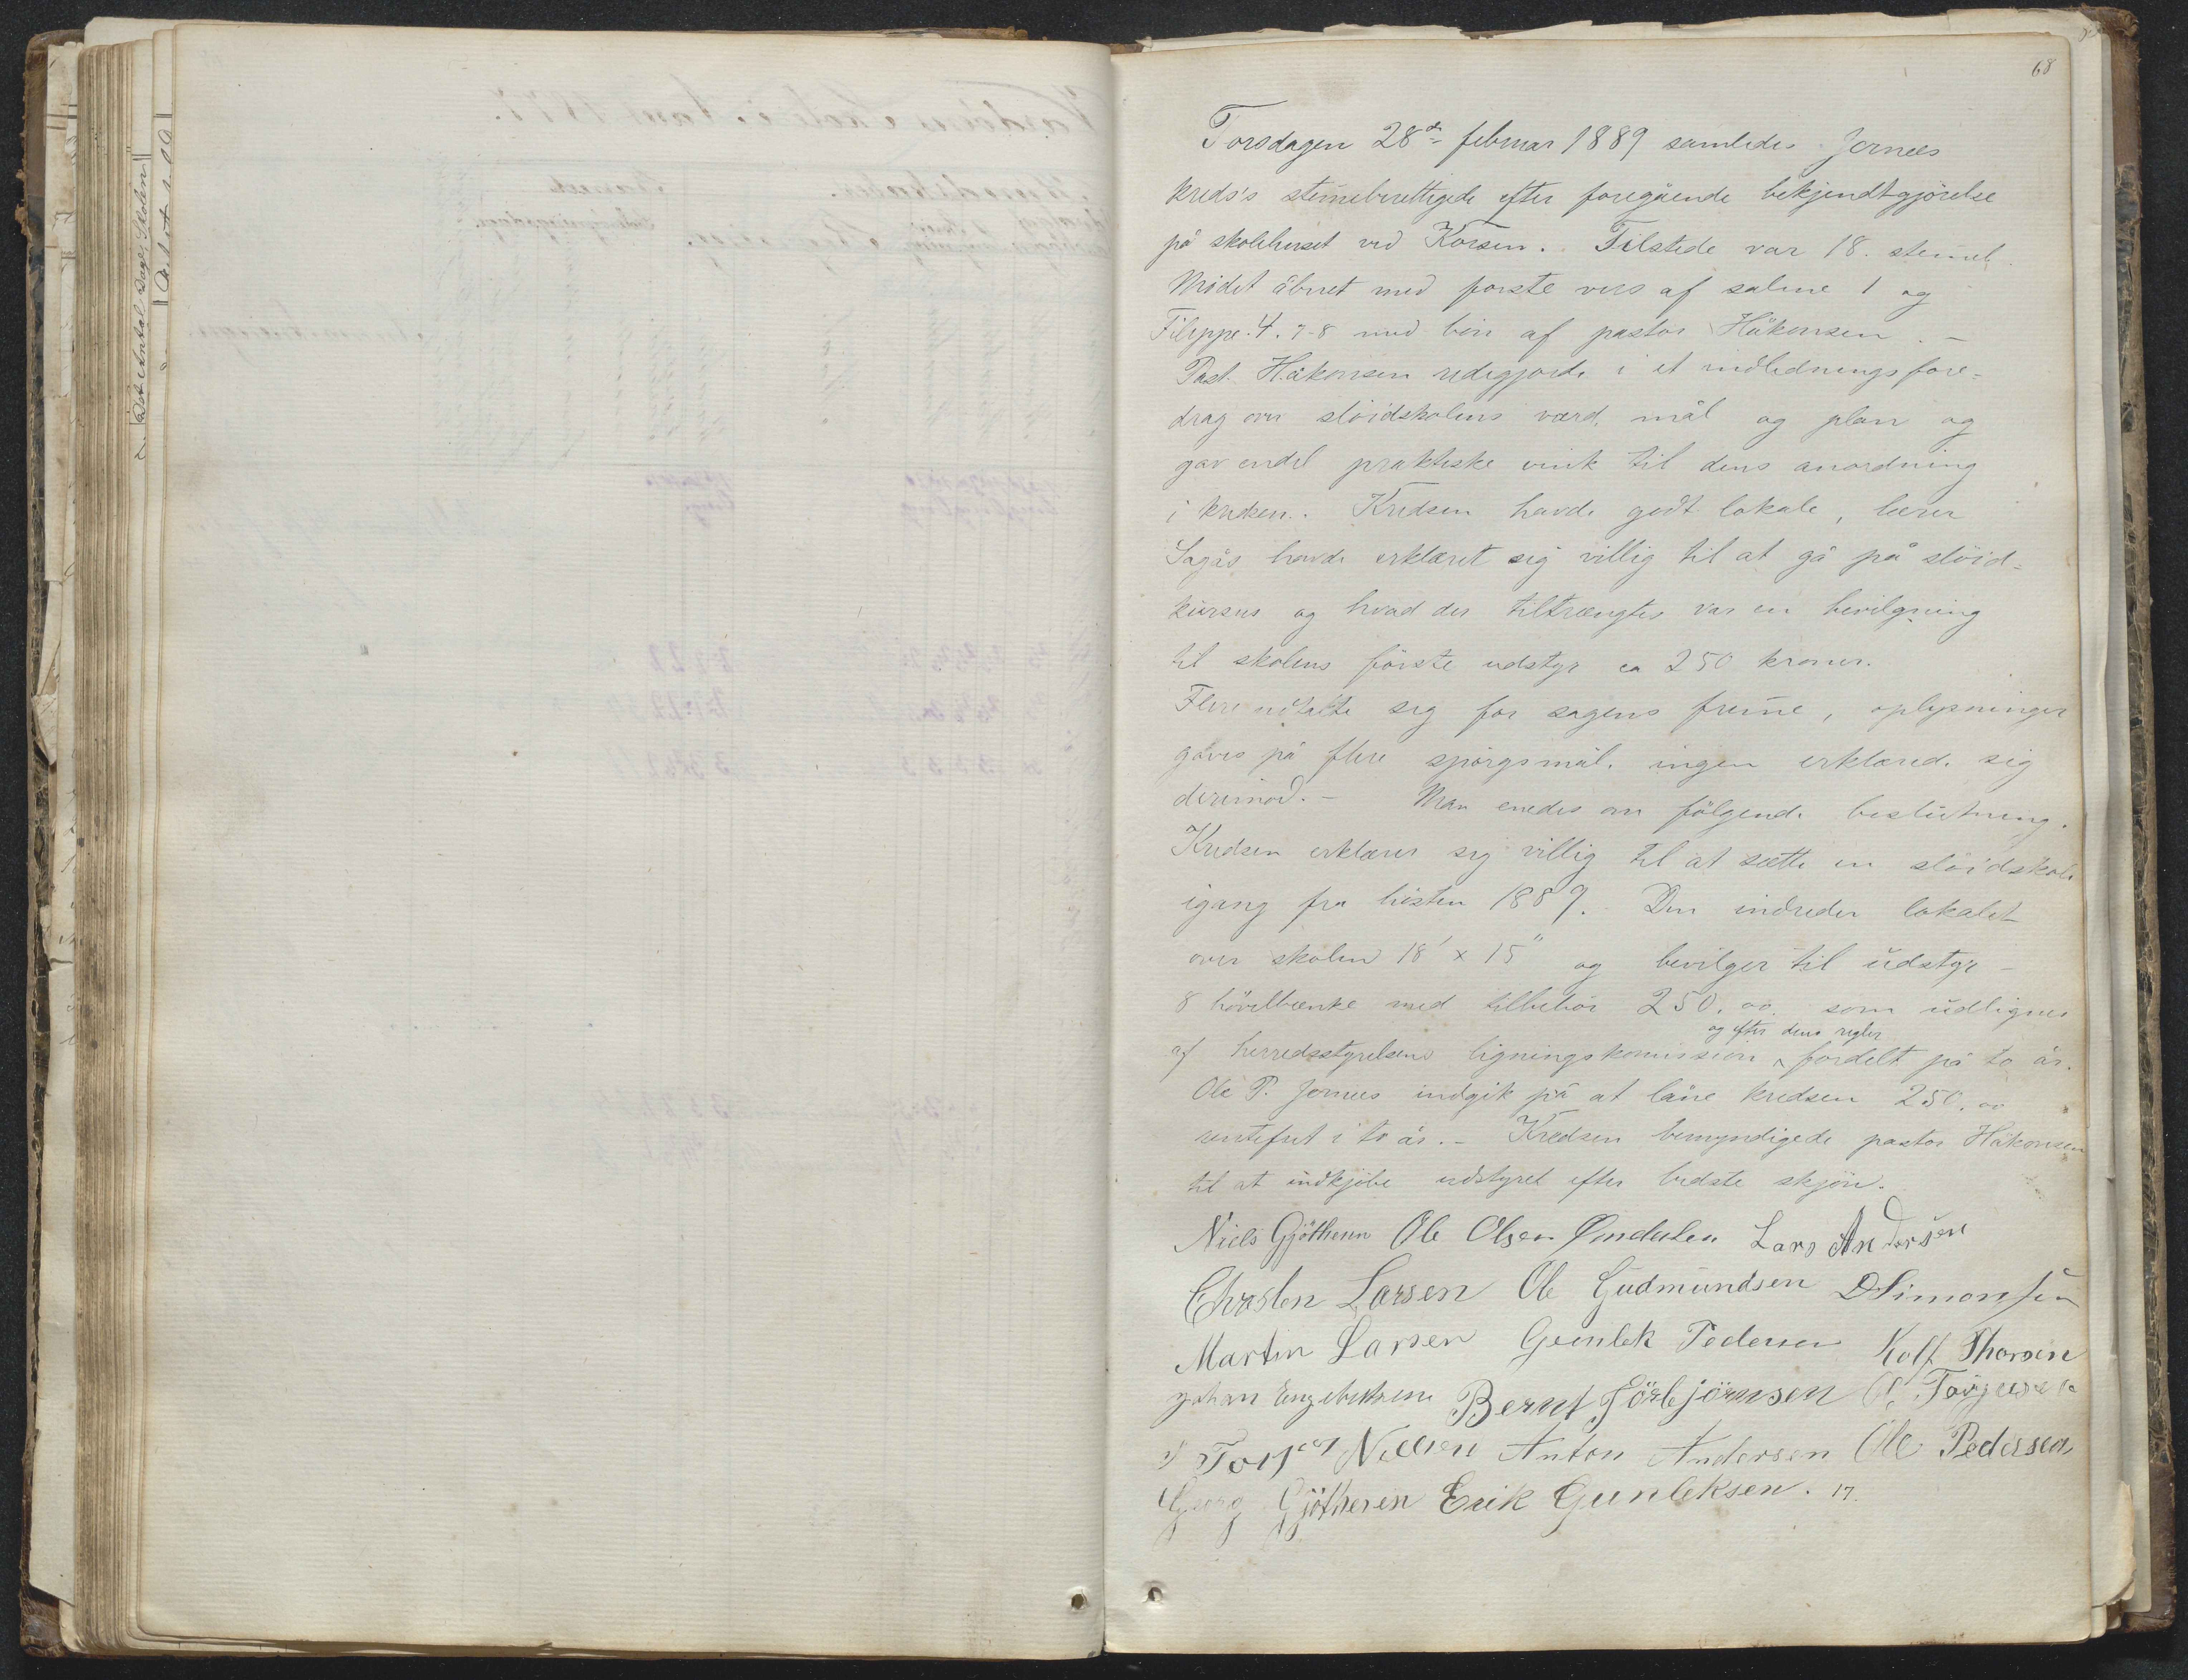 68
Torsdagen 28de februar 1889 samledes Jernæs
kreds's stemeberettigede efter foregående bekjendtgjörelse
på skolehuset ved Korsen. Tilstede var 18. stemeb.
Mödet åbnet med förste vers af salme 1 og
Filippe. 4. 7-8 med bön af pastor Håkonsen. –
Past. Håkonsen redegjorde i et indlednings fore-
drag over slöidskolens værd, mål og plan og
gav endel praktiske vink til dens anordning
i kredsen. Kredsen havde godt lokale, lærer
Sagås havde erklæret sig villig til at gå på slöid-
kursus og hvad der tiltrængtes var en bevilgning
til skolens förste udstyr ca 250 kroner.
Flere udtalte sig for sagens freme, oplysninger
gaves på flere spörgsmål. ingen erklærede sig
derimod. – Man enedes om fölgende beslutning.
Kredsen erklærer sig villig til at sætte en slöidskole
igang fra hösten 1889. Den indreder lokalet
over skolen 18' x 15" og bevilger til udstyr –
8 hövelbænke med tilbehör 250.00 som udlignes
og efter dens regler
af herredsstyrelsens ligningskomission fordelt på to år.
Ole P. Jernæs indgik på at låne kredsen 250.00
rentefrit i to år. – Kredsen bemyndigede pastor Håkonsen
til at indkjöbe udstyret efter bedste skjön.
Niels Gjöthesen Ole Olsen Lars Andersen
Chrsten Larsen Ole Gudmundsen D Simonsen
Martin Larsen Gunlek Pedersen Rolf Thorsen
Johan Engebretsen Bernt Törbjörnsen O. Torjusen
Torjus Nilsen Anton Andersen Ole Pedersen
Georg Gjöthesen Erik Gunleksen. 17.
Det Antal Dage Skolen